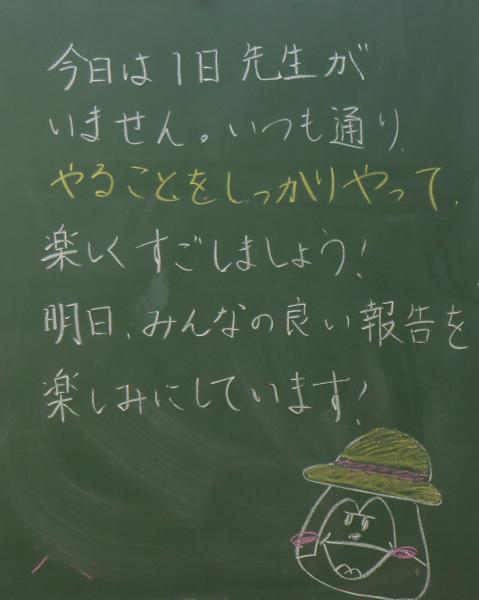 今日は1日先生が
いません。いつも通り
やることをしっかりやって、
楽しくすごしましょう!
明日、みんなの良い報告を
楽しみにしています!